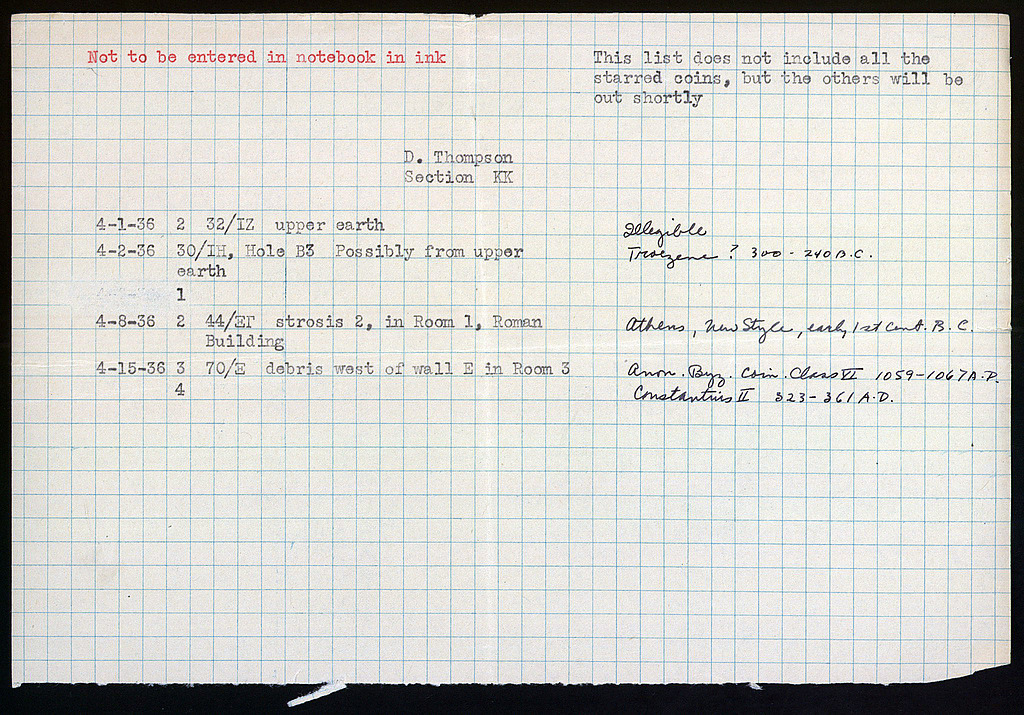 Not to be entered in notebook in ink
This list does not include all the
starred coins, but the others will be
out shortly
D. Thompson
Section KK
4-1-36 2 32/IZ upper earth Illegible
4-2-36 30/IH, Hole B3 Possibly from upper Troezene ? 300 - 240 B.C.
earth
1
4-8-36 2 44/ΕΓ strosis 2, in Room 1, Roman Athens, New Style, early 1st Cent. B.C.
Building
4-15-36 3 70/E debris west of wall E in Room 3 Anon. Byz. Coin. Class VI 1059-1067 A.D.
4 Constantius II 323-361 A.D.